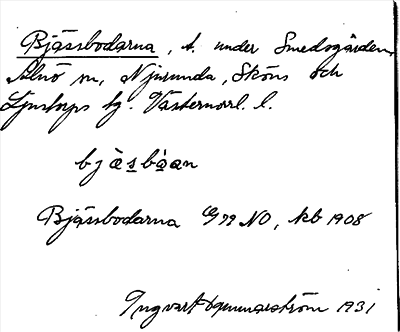 Bjässbodarna, t. under Smedsgården,
Alnö sn, Njurunda, Sköns och
Ljustorps tg. Västernorrl. l.
bjäsbo̱an
Bjässbodarna G 99 NO, kb 1908
Ingvart Gunnarström 1931